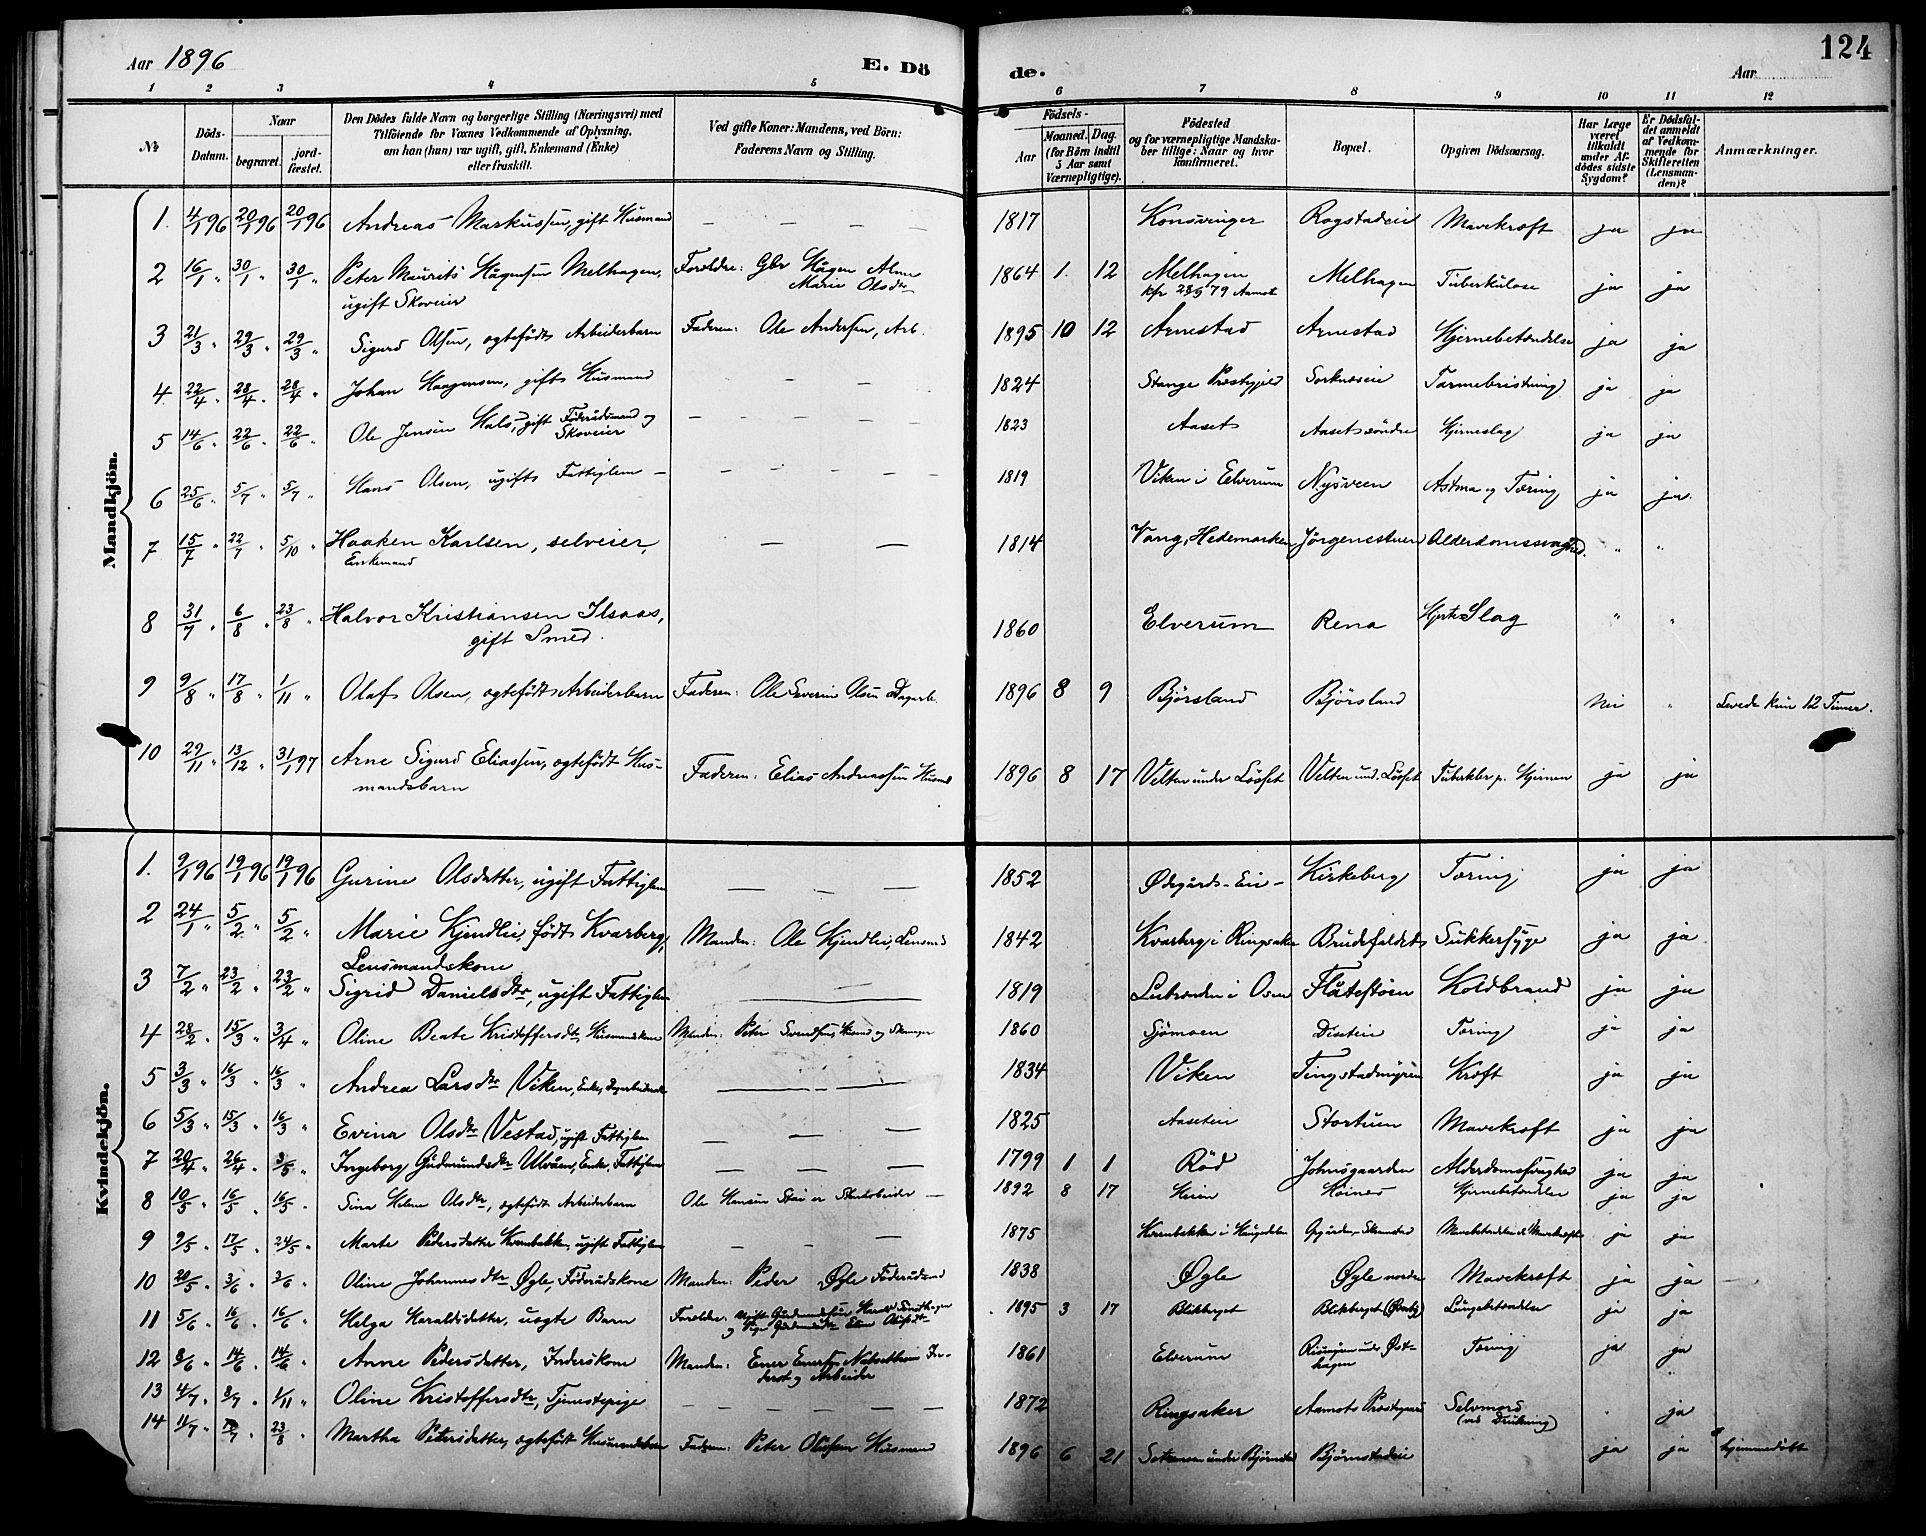 Aar 1896 E. Dö de. Aar 124
1 2 3 4 5 6 7 8 9 10 11 12
№ Döds-Datum. Naar begravet. jordfæstet. Den Dödes fulde Navn og borgerlige Stilling (Næringsvei) med Tilföiende for Voxnes Vedkommende af Oplysning, om han (hun) var ugift, gift, Enkemand (Enke) eller fraskilt. Ved gifte Koner: Mandens, ved Börn: Faderens Navn og Stilling. Födsels- Aar Maaned. Dag. (for Börn indtil 5 Aar samt Værnepligtige). Födested og for værnepligtige Mandskaber tillige: Naar og hvor konfirmeret. Bopæl. Opgiven Dödsaarsag. Har Læge været tilkaldt under Afdödes sidste Sygdom? Er Dödsfaldet anmeldt af Vedkommende for Skifteretten (Lensmanden)? Anmærkninger.
Mandkjön.
1. 4/1 96 20/1 96 20/1 96 Andreas Markussen, gift Husmand — — — — 1817 Konsvinger Rogstadeie Mavekræft ja ja
2 16/1 " 30/1 " 30/1 " Peter Mauritz Hågensen Melhagen, Foreldre: Gbr Hågen Alme 1864 1. 12 Melhagen Melhagen Tuberkulose ja ja
ugift Skoveier Marie Olsdtr kfr 28/9 79 Aamot
3 21/3 " 29/3 " 29/3 " Sigurd Olsen, ægtefødt Arbeiderbarn Faderen: Ole Andersen, Arb. 1895 10 12 Arnestad Arnestad Hjernebetændelse ja ja
4. 22/4 " 28/4 " 28/4 " Johan Haagensen, gift Husmand — — 1824 Stange Præstegjeld Sorknæseie Tarmebristning ja ja
5 14/6 " 22/6 " 22/6 " Ole Jensen Hals, gift Föderådsmand og Skoveier — — — — 1823 Aaset Aaset søndre Hjerneslag ja ja
6 25/6 " 5/7 " 5/7 " Hans Olsen, ugift Fattiglem — — — — — 1819 Viken i Elverum Nysveen Astma og Tæring ja ja
7 15/7 " 22/7 " 5/10 " Haaken Karlsen, selveier, — — 1814 Vang, Hedemarken Jörgenstuen Alderdomssvaghed. " "
Enkemand
8 31/7 " 6/8 " 23/8 " Halvor Kristiansen Ilsaas, 1860 Elverum Rena Hjerte Slag " "
gift Smed.
9 9/8 " 17/8 " 1/11 " Olaf Olsen, ægtefødt Arbeiderbarn Faderen: Ole Severin Olsen Dagarb. 1896 8 9 Björsland Björsland Nei " Levede kun 12 Timer.
10 29/11 " 13/12 " 31/1 97 Arne Sigurd Eliassen, ægtefödt Hus- Faderen: Elias Andreassen Husmd 1896 8 17 Velten under Löset Velten und. Löset Tuberkler p. Hjernen ja ja
mandsbarn
Kvindekjön.
1. 9/1 96 19/1 96 19/1 96 Gurine Olsdatter, ugift Fattiglem — — — 1852 Ødegårds-Eie — Kirkeberg Tæring. ja ja
2 24/1 " 5/2 " 5/2 " Marie Kjendlie, født Kvarberg, Manden: Ole Kjendlie, Lensmd 1842 Kvarberg i Ringsaker Brudefaldet Sukkersyge ja ja
Lensmandskone
3 7/2 " 23/2 " 23/2 " Sigrid Danielsdtr, ugift Fattiglem — — — 1819 i Osen Flåtestöen Koldbrand ja ja
4 28/2 " 15/3 " 3/4 " Oline Beate Kristoffersdtr, Husmandskone Manden: Peter Svendsen, Husmd og 1860 Sjömoen Diseteie Tæring ja ja
5 3/3 " 16/3 " 16/3 " Andrea Larsdtr Viken, Enke, — — — 1834 Viken Tingstadmyren Kræft ja ja
6 5/3 " 15/3 " 16/3 " Evina Olsdtr Vestad, ugift Fattiglem — — — 1825 Aaseteie Stortuen Mavekræft ja ja
7 20/4 " 26/4 " 3/5 " Ingeborg Gudmundsdtr Ulvåen, Enke, Fattiglem — — — 1799 1 1 Röd Johnsgaarden Alderdomssvaghed ja ja
8 10/5 " 16/5 " 16/5 " Sina Helene Olsdtr, ægtefødt Arbeiderbarn Ole Hansen — 1892 8 17 Hjernebetændelse ja ja
9 9/5 " 17/5 " 24/5 " Marte Pedersdatter Kvernbakken, ugift Fattiglem — — — 1875 Kvernbakken i Haugedalen ja ja
10 20/5 " 3/6 " 3/6 " Oline Johannesdtr Øgle, Föderådskone Manden: Peder Øgle Föderådsmd 1838 Øgle Øgle nordre Mavekræft ja ja
11 5/6 " 16/6 " 16/6 " Helga Haraldsdatter, uægte Barn Foreldre: 1895 3 17 Blikberget Blikberget Lungebetændelse ja ja
12 8/6 " 14/6 " 14/6 " Anne Pedersdatter, Inderskone Manden: Ener Enersen In- 1861 Elverum Tæring ja ja
derst og Arbeider
13 4/7 " 8/7 " 1/11 " Oline Kristoffersdtr, Tjenestepige — — — — — 1872 Ringsaker Aamots Præstegaard Selvmord ja
(ved Drukning)
14 11/7 " 23/8 " Martha Petersdatter, ægtefödt Husmandsbarn Faderen: Peter Olufsen Husmand 1896 6 21 under Björnstad Björnstadeie ja ja hjemmedöbt